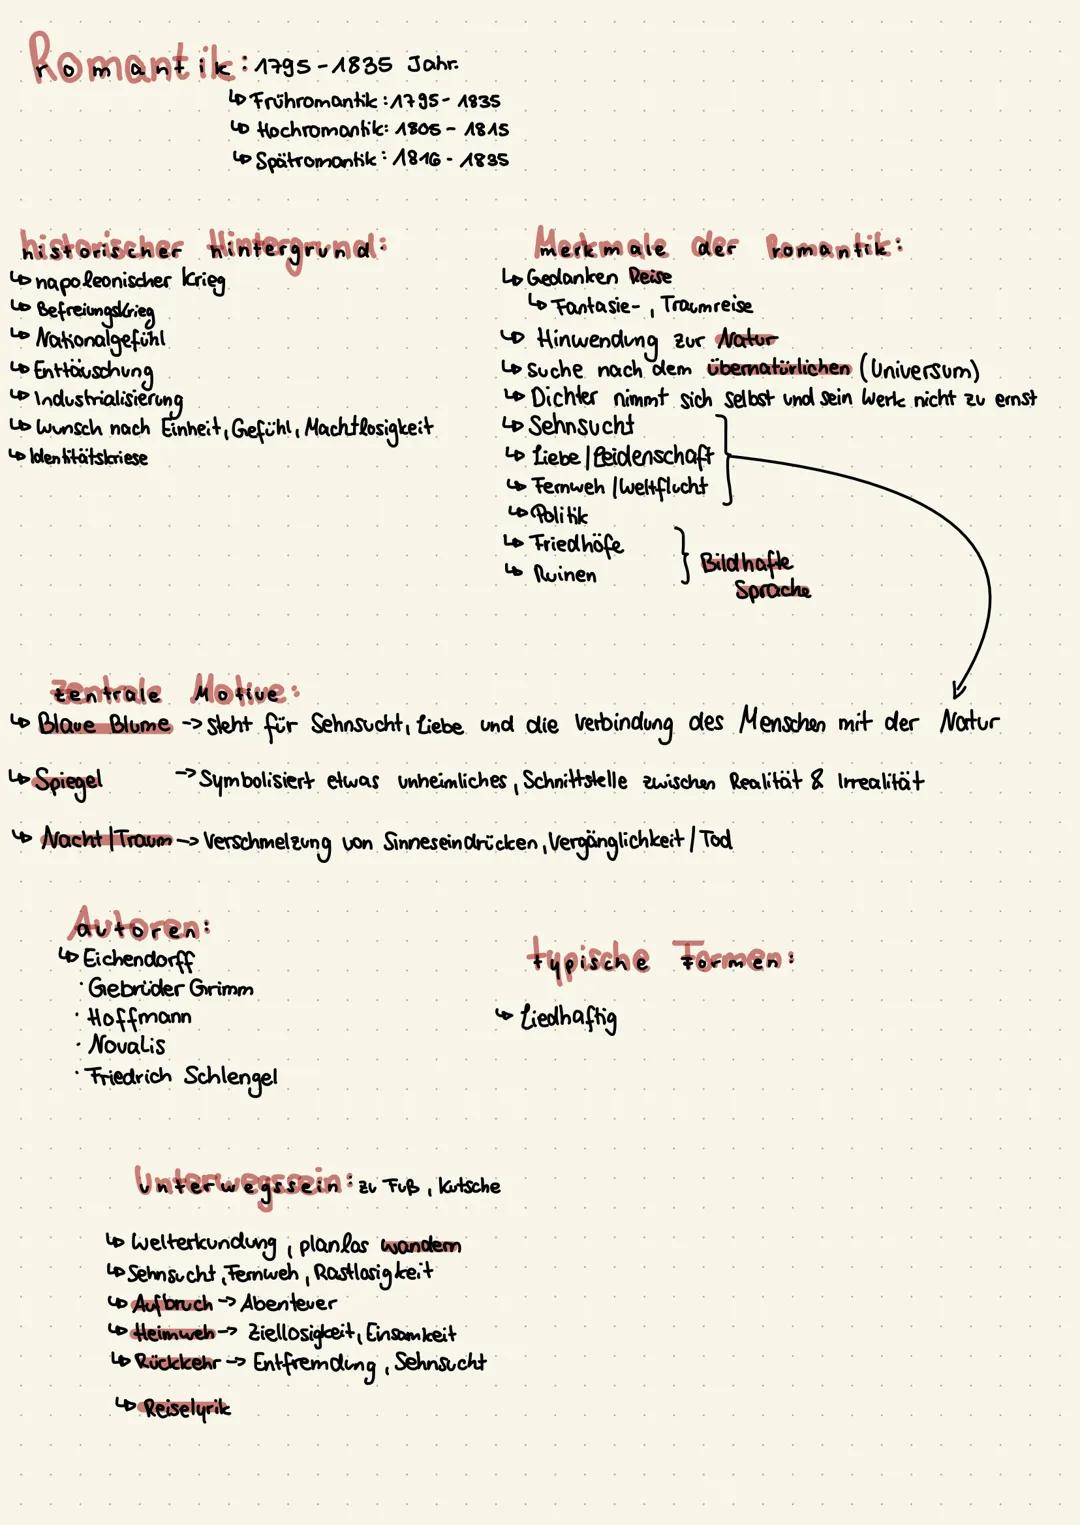 Romantik: 1795-1835 Jahr.
↳ Frühromantik: 1795-1835
↳ Hochromantik: 1805-1815
↳ Spätromantik: 1816-1835
historischer Hintergrund:
↳ napoleonischer Krieg
↳ Befreiungskrieg
↳ Nationalgefühl
↳ Enttäuschung
↳ Industrialisierung
↳ Wunsch nach Einheit, Gefühl, Machtlosigkeit
↳ Identitätskriese
Merkmale der Romantik:
↳ Gedanken Reise
↳ Fantasie-, Traumreise
↳ Hinwendung zur Natur
↳ Suche nach dem übernatürlichen (Universum)
↳ Dichter nimmt sich selbst und sein Werk nicht zu ernst
↳ Sehnsucht
↳ Liebe / Leidenschaft
↳ Fernweh / Weltflucht
↳ Politik
↳ Friedhöfe
↳ Ruinen
Bildhafte
Sprache
zentrale Motive:
↳ Blaue Blume -> steht für Sehnsucht, Liebe und die Verbindung des Menschen mit der Natur
↳ Spiegel -> Symbolisiert etwas unheimliches, Schnittstelle zwischen Realität & Irrealität
↳ Nacht / Traum -> Verschmelzung von Sinneseindrücken, Vergänglichkeit / Tod
Autoren:
↳ Eichendorff
· Gebrüder Grimm
· Hoffmann
· Novalis
· Friedrich Schlengel
typische Formen:
↳ Liedhaftig
Unterwegssein: zu Fuß, Kutsche
↳ Welterkundung, planlos wandern
↳ Sehnsucht, Fernweh, Rastlosigkeit
↳ Aufbruch -> Abenteuer
↳ Heimweh -> Ziellosigkeit, Einsamkeit
↳ Rückkehr -> Entfremdung, Sehnsucht
↳ Reiselyrik